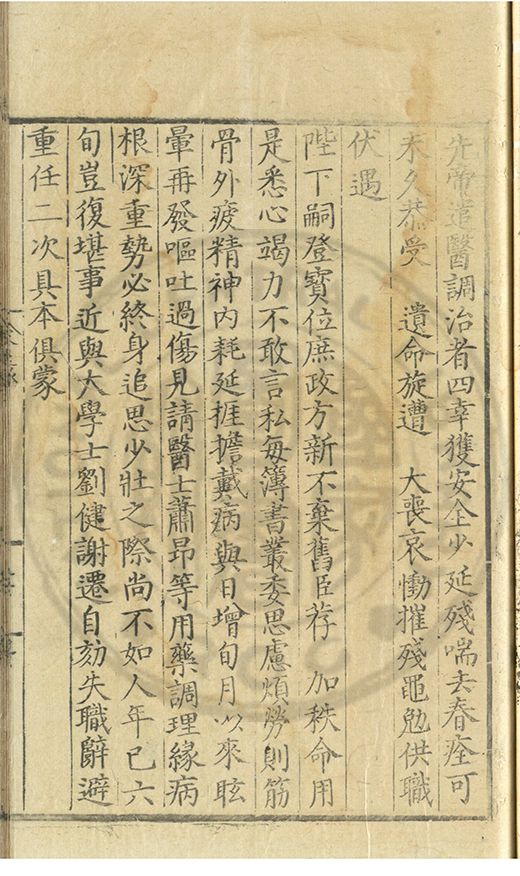 先帝遣醫調治者四幸獲安全少延殘喘去春痊可
未久恭受　遺命旋遭　大喪哀慟摧殘黽勉供職
伏遇
陛下嗣登寶位庶政方新不棄舊臣荐　加秩命用
是悉心竭力不敢言私每簿書叢委思慮煩勞則筋
骨外疲精神內耗延捱擔戴病與日增旬月以來眩
暈再發嘔吐過傷見請醫士蕭昂等用藥調理緣病
根深重勢必終身追思少壯之際尚不如人年已六
旬豈復堪事近與大學士劉健謝遷自劾失職辭避
重任二次具本俱蒙